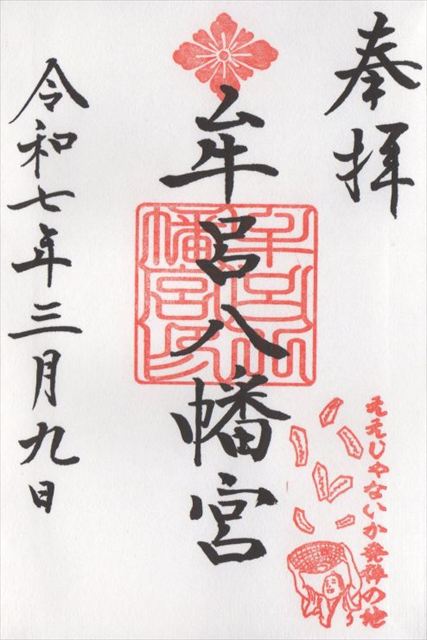 奉拝
牟呂八幡宮
ええじゃないか発祥の地
令和七年三月九日